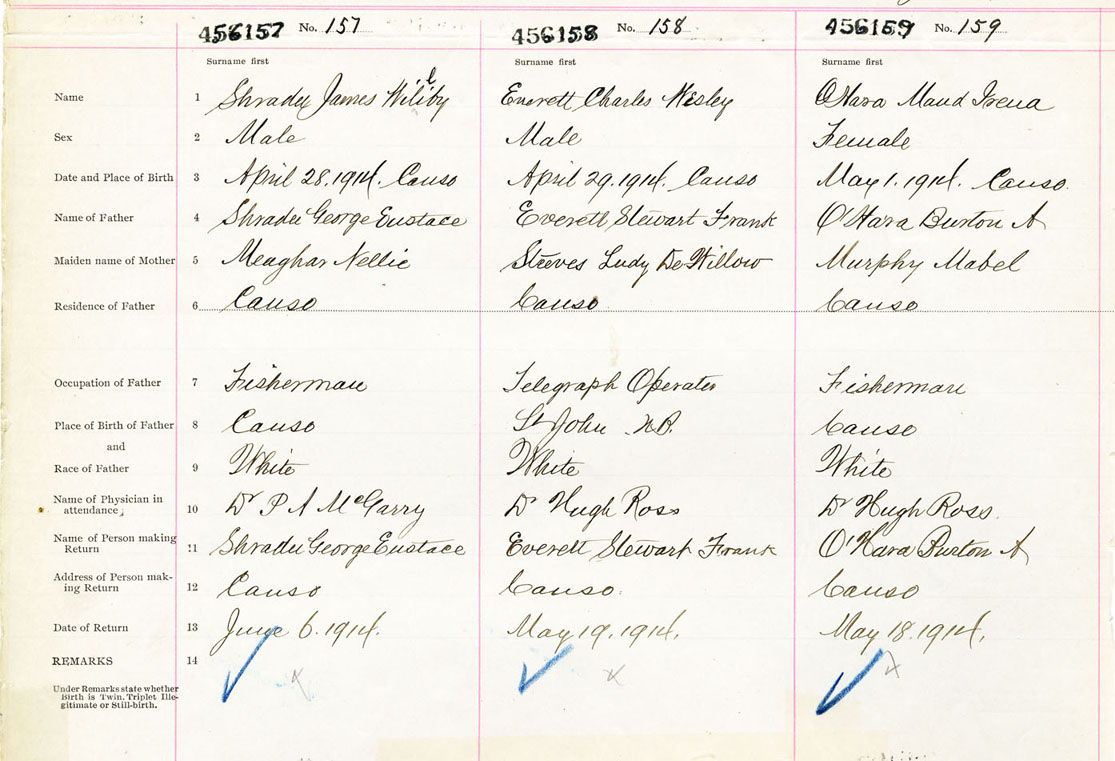 456157 No. 157 456158 No. 158 456159 No. 159
Surname first Surname first Surname first
Name 1 Shrader James Everett Charles Wesley O'Hara Maud Irena
Sex 2 Male Male Female
Date and Place of Birth 3 April 28. 1914. Canso April 29. 1914. Canso May 1. 1914. Canso.
Name of Father 4 Shrader George Eustace Everett Stewart Frank O'Hara Burton A
Maiden name of Mother 5 Meaghar Nellie Steeves Ludy De Willow Murphy Mabel
Residence of Father 6 Canso Canso. Canso
Occupation of Father 7 Fisherman Telegraph Operator Fisherman
Place of Birth of Father 8 Canso St John N.B. Canso
and
Race of Father 9 White White White
Name of Physician in
attendance, 10 Dr P A McGarry Dr Hugh Ross Dr Hugh Ross.
Name of Person making
Return 11 Shrader George Eustace Everett Stewart Frank O'Hara Burton A
Address of Person mak-
ing Return 12 Canso Canso. Canso
Date of Return 13 June 6. 1914. May 19. 1914. May 18. 1914.
REMARKS 14
Under Remarks state whether
Birth is Twin, Triplet Ille-
gitimate or Still-birth.